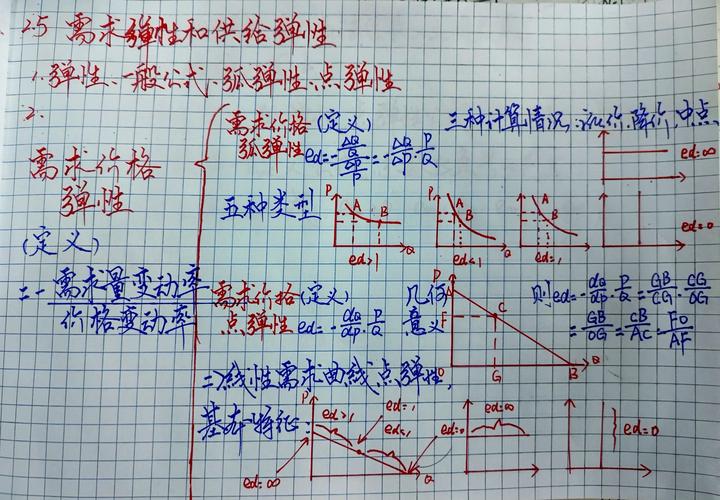 2.5 需求弹性和供给弹性
1.弹性、一般公式、弧弹性、点弹性
2.
需求价格弹性
(定义)
=-需求量变动率/价格变动率
需求价格弧弹性 (定义)
ed=-(ΔQ/Q)/(ΔP/P)=-ΔQ/ΔP·P/Q
三种计算情况:涨价、降价、中点
ed=∞
五种类型
P A B Q ed>1
P A B Q ed<1
A B ed=1
ed=0
需求价格点弹性 (定义)
ed=-dQ/dP·P/Q
几何意义
P A F C O G B Q
则ed=-dQ/dP·P/Q=GB/CG·CG/OG
=GB/OG=CB/AC=FO/AF
二)线性需求曲线点弹性,
基本特征:
P ed>1 ed=1 ed<1 ed=0 Q
ed=∞
ed=∞
ed=0